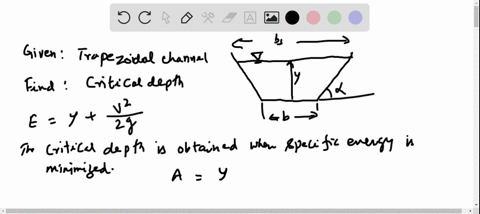 Given: Trapezoidal channel
Find: Critical depth
E = y + V²/2g
The critical depth is obtained when specific energy is
minimized.
A = y
bs
y
α
b